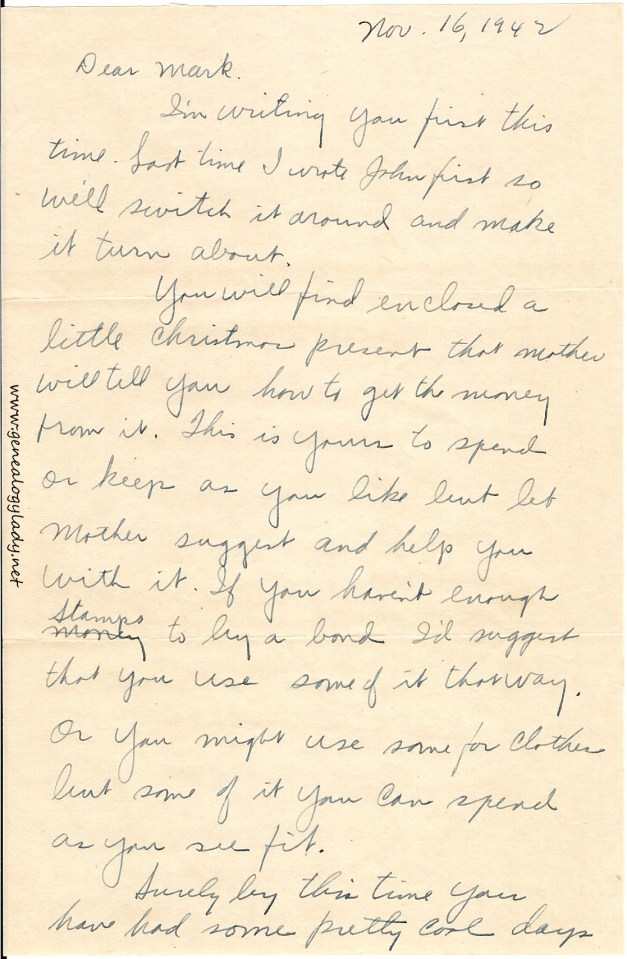 Nov. 16, 1942
Dear Mark.
I'm writing you first this
time. Last time I wrote John first so
we'll switch it around and make
it turn about.
You will find enclosed a
little Christmas present that mother
will tell you how to get the money
from it. This is yours to spend
or keep as you like but let
Mother suggest and help you
with it. If you haven't enough
stamps
money to buy a bond I'd suggest
that you use some of it that way.
Or you might use some for clothes
but some of it you can spend
as you see fit.
Surely by this time you
have had some pretty cool days
www.genealogylady.net